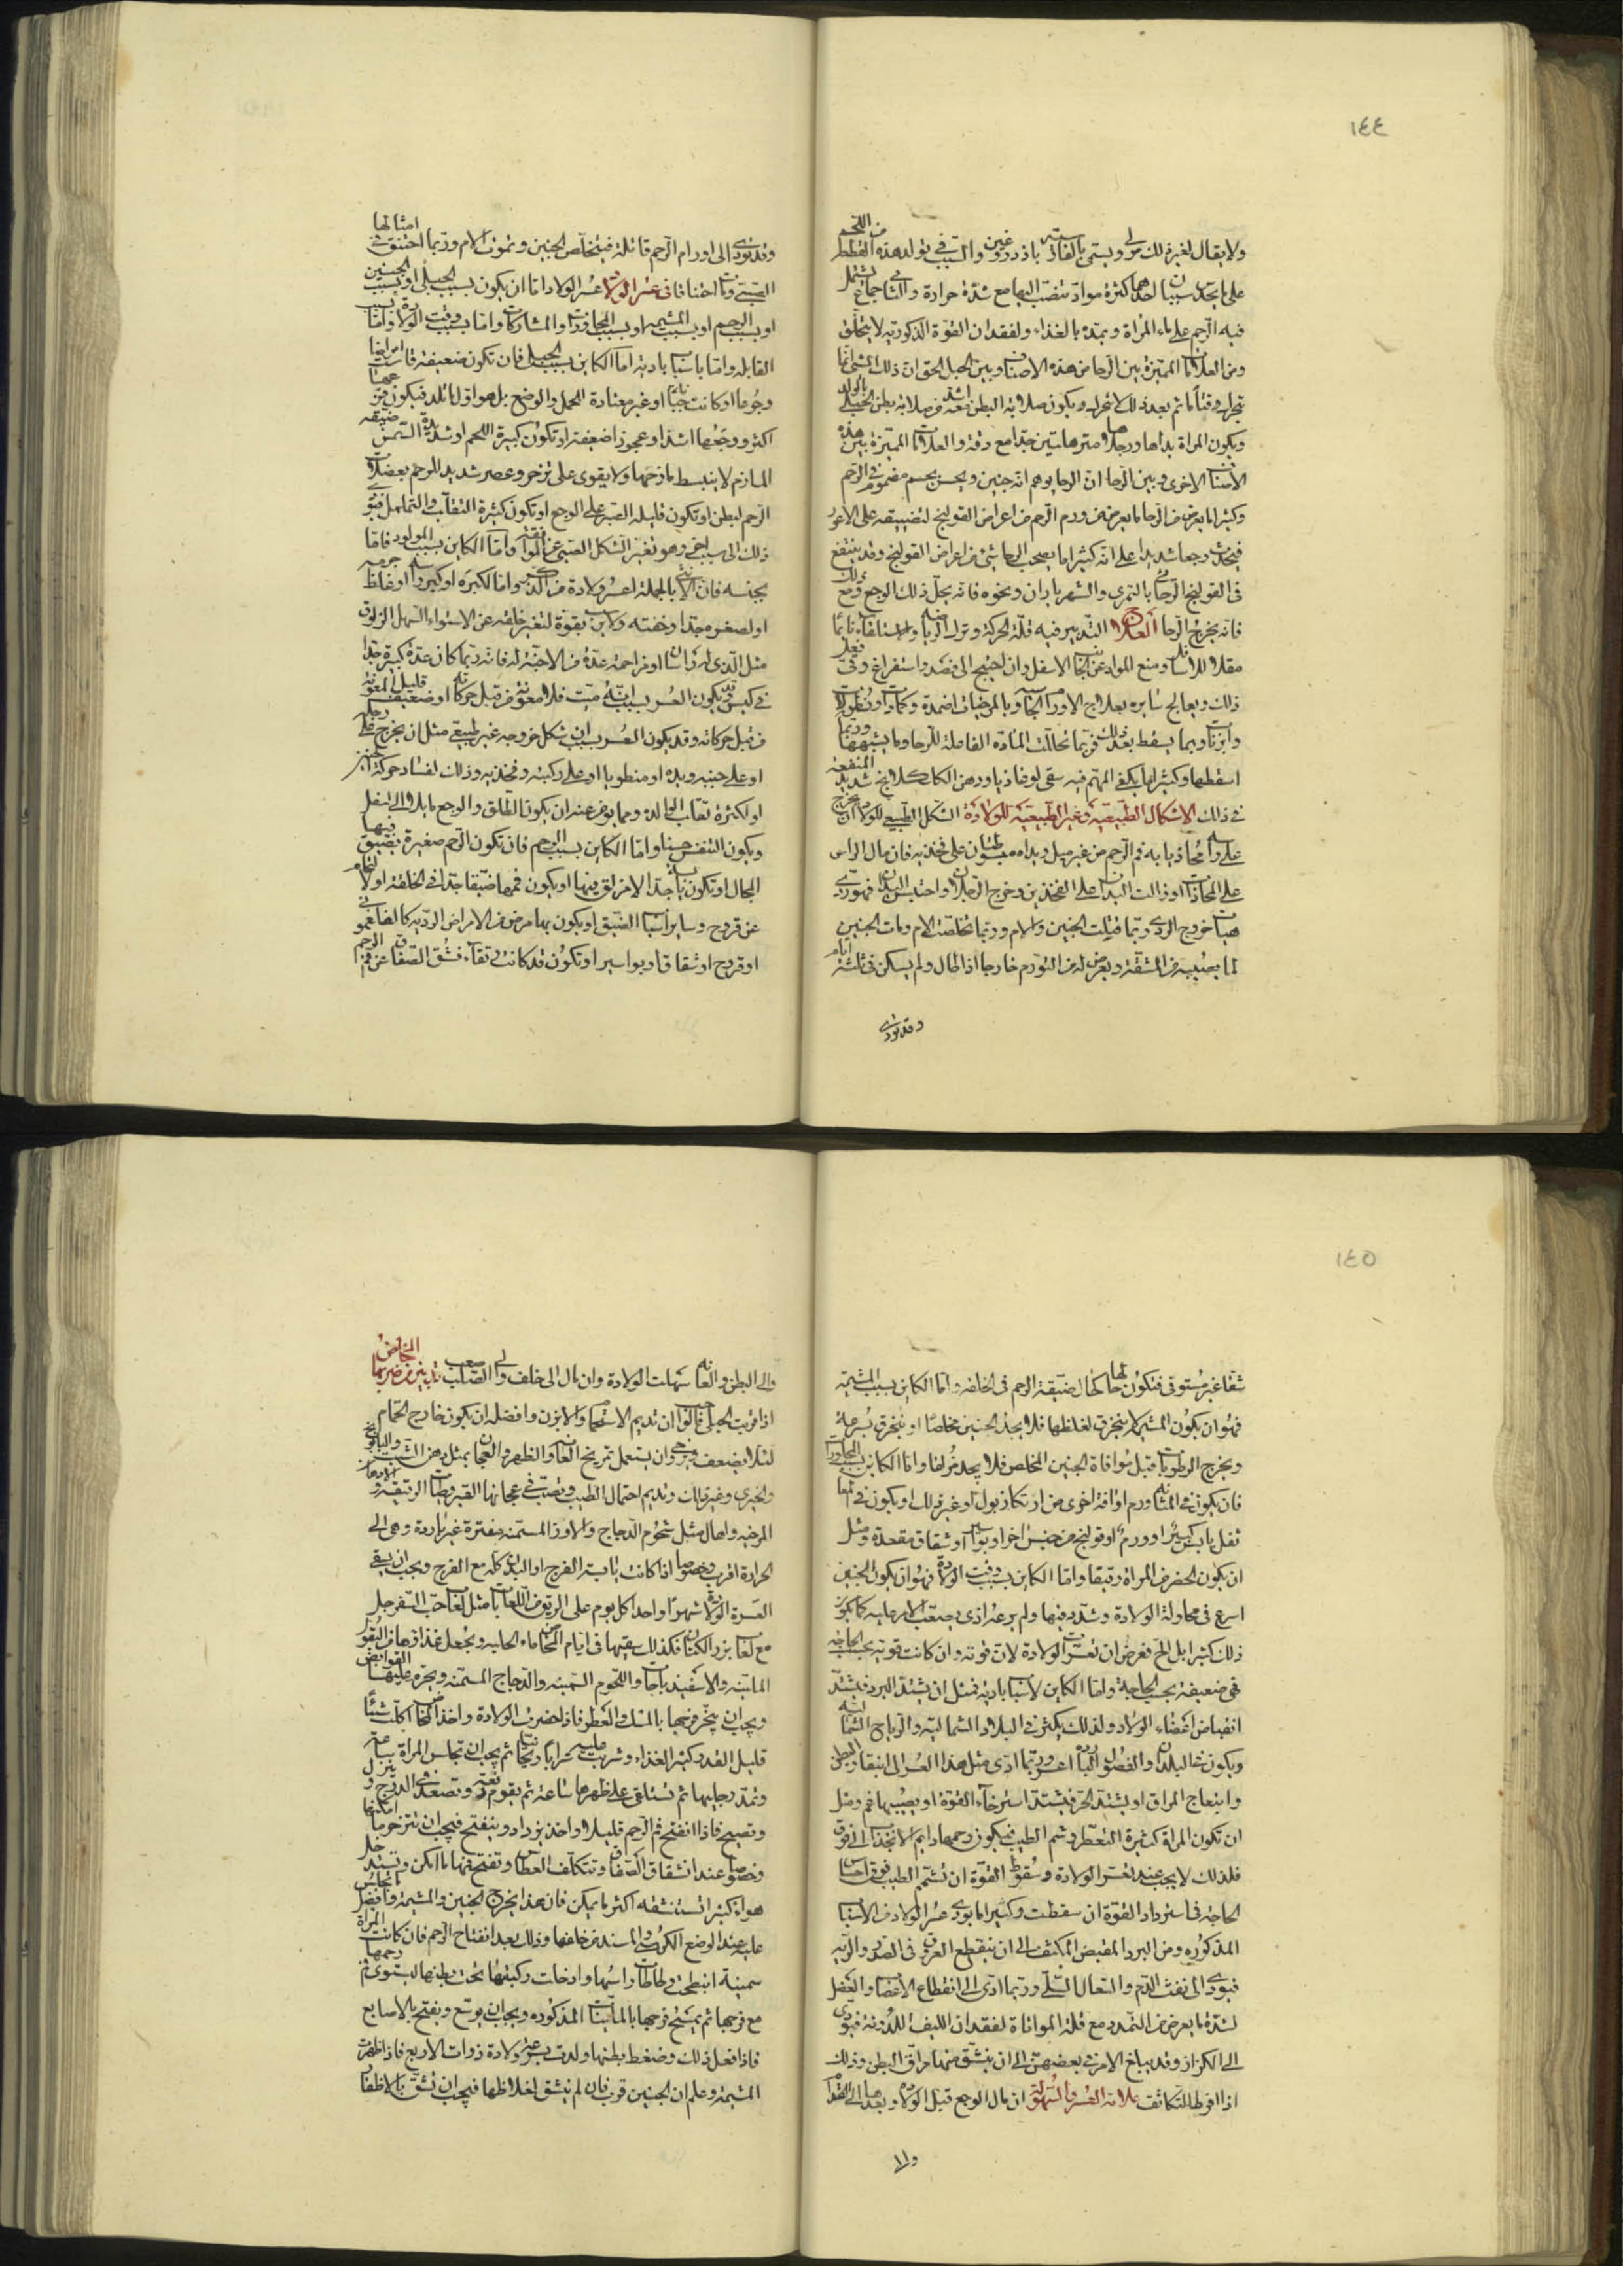 ١٤٤
ولا يقال لغير ذلك مولى ويسمى بالفارسية باذ دروغين والسبب فى تولد هذه القطط من اللحم
على ما يحدس سببان احدهما كثرة مواد تنصب اليها مع شدة حرارة والثانى جماع يشتمل
فيه الرحم على ماء المراة ويمده بالغذاء ولفقدان القوة الذكورية لا يتخلق
ومن العلامات المميزة بين الرجا من هذه الاصناف وبين الحبل الحق ان ذلك الشى انما
تحرك وقتا ما ثم بعد ذلك لا تتحرك ويكون صلابة البطن معه اشد من صلابة بطن الحبلى بالولد
ويكون المراة يداها ورجلاها مترهلتين جدا مع دقة والعلامات المميزة بين هذه
الاصناف الاخرى وبين الرجا ان الرجا يوهم انه جنين ويحس بجسم مضموم فى الرحم
وكثيرا ما يعرض من الرجا ما يعرض من ورم الرحم من اعراض القولنج لتضييقه على الاعور
فيحدث وجعا شديدا على انه كثيرا ما يصحب الرجا شى من اعراض القولنج وقد ينتفع
فى القولنج الرجائى بالتمرى والشهرياران ونحوه فانه يحل ذلك الوجع ومع ذلك
فانه يخرج الرجا العلاج التدبير فيه قلة الحركة وترك الرياضة والاستلقاء نائما
مقلا للراس ومنع المواد عن الجانب الاسفل وان احتيج الى فصد واستفراغ وقى فعل
ذلك ويعالج سايره بعلاج الاورام الجاسية وبالمرخيات اضمدة وكمادات ونطولات
وابزنات وبما يسقط بعد ذلك فربما تحللت المادة الفاعلة للرجا وما يشبهها وربما
اسقطها وكثيرا ما يكفى المهم فيه سقى لوغاذيا ودهن الكلكلانج شديد المنفعة
فى ذلك الاشكال الطبيعية وغير الطبيعية للولادة الشكل الطبيعى للولادة ان يخرج
على راسه محاذيا به فم الرحم من غير ميل ويداه مبسوطتان على فخذيه فان مال الراس
على المحاذاة او زالت اليدان على الفخذين وخرج الرجلان واحتبس اليدان فهو ردى
هيئات خروج الردى ربما قتلت الجنين والام وربما تخلصت الام ومات الجنين
لما يصيبه من المشقة ويعرض له من التورم خارجا اذا طال ولم يسكن فى ثلثة ايام
وقد تودى
وقد تودى الى اورام الرحم قاتلة فيتخلص الجنين وتموت الام وربما اختنق فى امثالها
الصبى ومات اختناقا فى عسر الولادة عسر الولادة اما ان يكون بسبب الحبلى او بسبب الجنين
او بسبب الرحم او بسبب المشيمة او بسبب المجاورات والمشاركات واما بسبب وقت الولادة واما بسبب
القابلة واما باسباب بادية اما الكاين بسبب الحبلى فان تكون ضعيفة قاست امراضا
وجوعا او كانت جبانا او غير معتادة للحمل والوضع بل هو اول ما تلد فيكون فزعها
اكثر ووجعها اشد او عجوزا ضعيفة او تكون كبيرة اللحم او شديدة السمن ضيقة
المازم لا ينبسط مازمها ولا يقوى على تزحر وعصر شديد للرحم بعضلات
الرحم لبطن او تكون قليلة الصبر على الوجع او تكون كثيرة التقلب والتململ فيؤدى
ذلك الى سبب اخر وهو تغير الشكل الصبى عن الموافقة واما الكاين بسبب المولود فاما
بجنسه فان الانثى بالجملة اعسر ولادة من الذكر واما لكبره او كبر راسه او غلظ جرمه
او لصغره جدا وخفته ولا يرسب بقوة لتغير خلقته عن الاستواء السهل الزلوق
مثل الذى له راسان او مزاحمة عدة من الاجنة له فانه ربما كان عدة كبيرة جدا
فى كيس قد يكون العسر بسبب انه ميت فلا معونة من قبل حركاته او ضعيف قليل المعونة
من قبل حركاته وقد يكون العسر بسبب ان شكل خروجه غير طبيعى مثل ان يخرج على رجليه
او على جنبه ويده او منطويا او على ركبته وفخذيه وذلك لفساد حركة الجنين
او لكثرة تقلب الحبلى
ويكون التنفس حسنا واما الكاين بسبب الرحم فان تكون الرحم صغيرة يضيق فيها
المجال او تكون يابسة جدا لا مزلق فيها او يكون فمها ضيقا جدا فى الخلقة او لالتحام
عن قروح وساير اسباب الضيق او يكون بها مرض من الامراض الردية كالفلغمونى
او قروح او شقاق او بواسير او تكون قد كانت رتقاء فشق الصفاق عن فم الرحم
١٤٥
شقا غير مستوفى فتكون حالها كحال ضيقة الرحم فى الخلقة واما الكاين بسبب المشيمة
فهو ان يكون المشيمة لا ينخرق لغلظها فلا يجد الجنين مخلصا او ينخرق بسرعة
ويخرج الرطوبات قبل موافاة الجنين المخلص فلا يجد مزلقا واما الكاين بسبب المجاورات
فان يكون فى المثانة ورم او افة اخرى من ارتكاز بول او غير ذلك او يكون فى المعا
ثفل يابس كثير او ورم او قولنج من جنس اخر او بواسير او شقاق مقعدة ومثل
ان يكون الخصر من المراة رقيقا واما الكاين بسبب وقت الولادة فهو ان يكون الجنين
اسرع فى محاولة الولادة وشدد فيها ولم يرعه اذى وصعب الامر عليه كما يكون
ذلك كثيرا بل الح فعرض ان تعسرت الولادة لان قوته وان كانت قوية بحسب الحاجة
فهى ضعيفة بحسب الحاجة واما الكاين لاسباب بادية فمثل ان يشتد البرد فيشتد
انقباض اعضاء الولادة ولذلك يكثر فى البلاد الشمالية والرياح الشمالية
ويكون فى البلدان والفصول الباردة اعسر وربما ادى مثل هذا العسر الى انبقار البطن
وانبعاج المراق او يشتد الحر فيشتد استرخاء القوة او يصيبها غم ومثل
ان تكون المراة كثيرة التعطر وشم الطيب فيكون رحمها دايم الانجذاب الى فوق
فلذلك لا يجب عند تعسر الولادة وسقوط القوة ان تشم الطيب فوق امساس
الحاجة فى استرداد القوة ان سقطت وكثيرا ما يودى عسر الولادة من الاسباب
المذكورة ومن البرد المقبض المكثف الى ان ينقطع العرق فى الصدر والرية
فيودى الى نفث الدم والسعال السلى وربما ادى الى انقطاع الاعصاب والعضل
لشدة ما يعرض من التمدد مع قلة المواتاة لفقدان الليف اللدونة فيودى
الى الكزاز وقد يبلغ الامر فى بعضهن الى ان ينشق منها مراق البطن وذلك
اذا افرط التكاثف علامة العسر والسهولة ان مال الوجع قبل الولادة وبعدها الى القدام
والى
والى البطن والعانة سهلت الولادة وان مال الى خلف والى الصلب صعب تدبير من ضربها المخاض
اذا قربت الحبلى قالوا ان تديم الاستحمام والابزن وافضله ان يكون خارج الحمام
لئلا يضعف ويرخى وان يستعمل تمريخ العانة والظهر والعجان بمثل دهن الشبت والبابونج
والخيرى وغير ذلك وتديم احتمال الطيب ويصب فى عجانها القيروطيات الرقيقة والادهان
المرخية واهال مثل شحوم الدجاج والاوز المسمنة مفترة غير باردة وهى الى
الحرارة اقرب وخصوصا اذا كانت يابسة الفرج او البدن كله مع الفرج ويجب ان يسقى
العسرة الولادة شهرا واحدا كل يوم على الريق من اللعابات مثل لعاب حب السفرجل
مع لعاب بزر الكتان فكذلك يسقيها فى ايام المخاض ماء الحلبة ويجعل غذاوها من البقول
الملينة والاسفيذباجات واللحوم السمينة والدجاج المسمنة ويحرم عليها القوابض
ويجب ان يبخر فرجها بالمسك والعطر فاذا حضرت الولادة واخذ المخاض اكلت شيئا
قليل القدر كثير الغذاء وشربت عليه شرابا ريحانيا ثم يجب ان تجلس المراة ساعة
وتمد رجليها ثم تستلقى على ظهرها ساعة ثم يقوم بغتة وتصعد فى الدرج وتنزل
وتصيح فاذا انفتح فم الرحم قليلا واخذ يزداد وينفتح فيجب ان تتزحر ما امكنها
وخصوصا عند انشقاق الصفاق وتتكلف العطاس وتفتح فمها ما امكن وتستدخل
هواء كثيرا تستنشقه اكثر ما يمكن فان هذا يخرج الجنين والمشيمة وافضل ما تجلس
عليه عند الوضع الكرسى والمسند من خلفها وذلك بعد انفتاح الرحم فان كانت المراة
سمينة انبطحت وطاطات راسها وادخلت ركبتها تحت بطنها ليستوى فم رحمها
مع فرجها ثم يمسح فرجها بالملينات المذكورة ويجب ان يوسع ويفتح بالاصابع
فاذا فعل ذلك وضغط بطنها ولدت بسرعة ولادة ذوات الاربع فاذا ظهرت
المشيمة وعلم ان الجنين قرب فان لم ينشق لغلاظها فيجب ان تشق بالاظفار